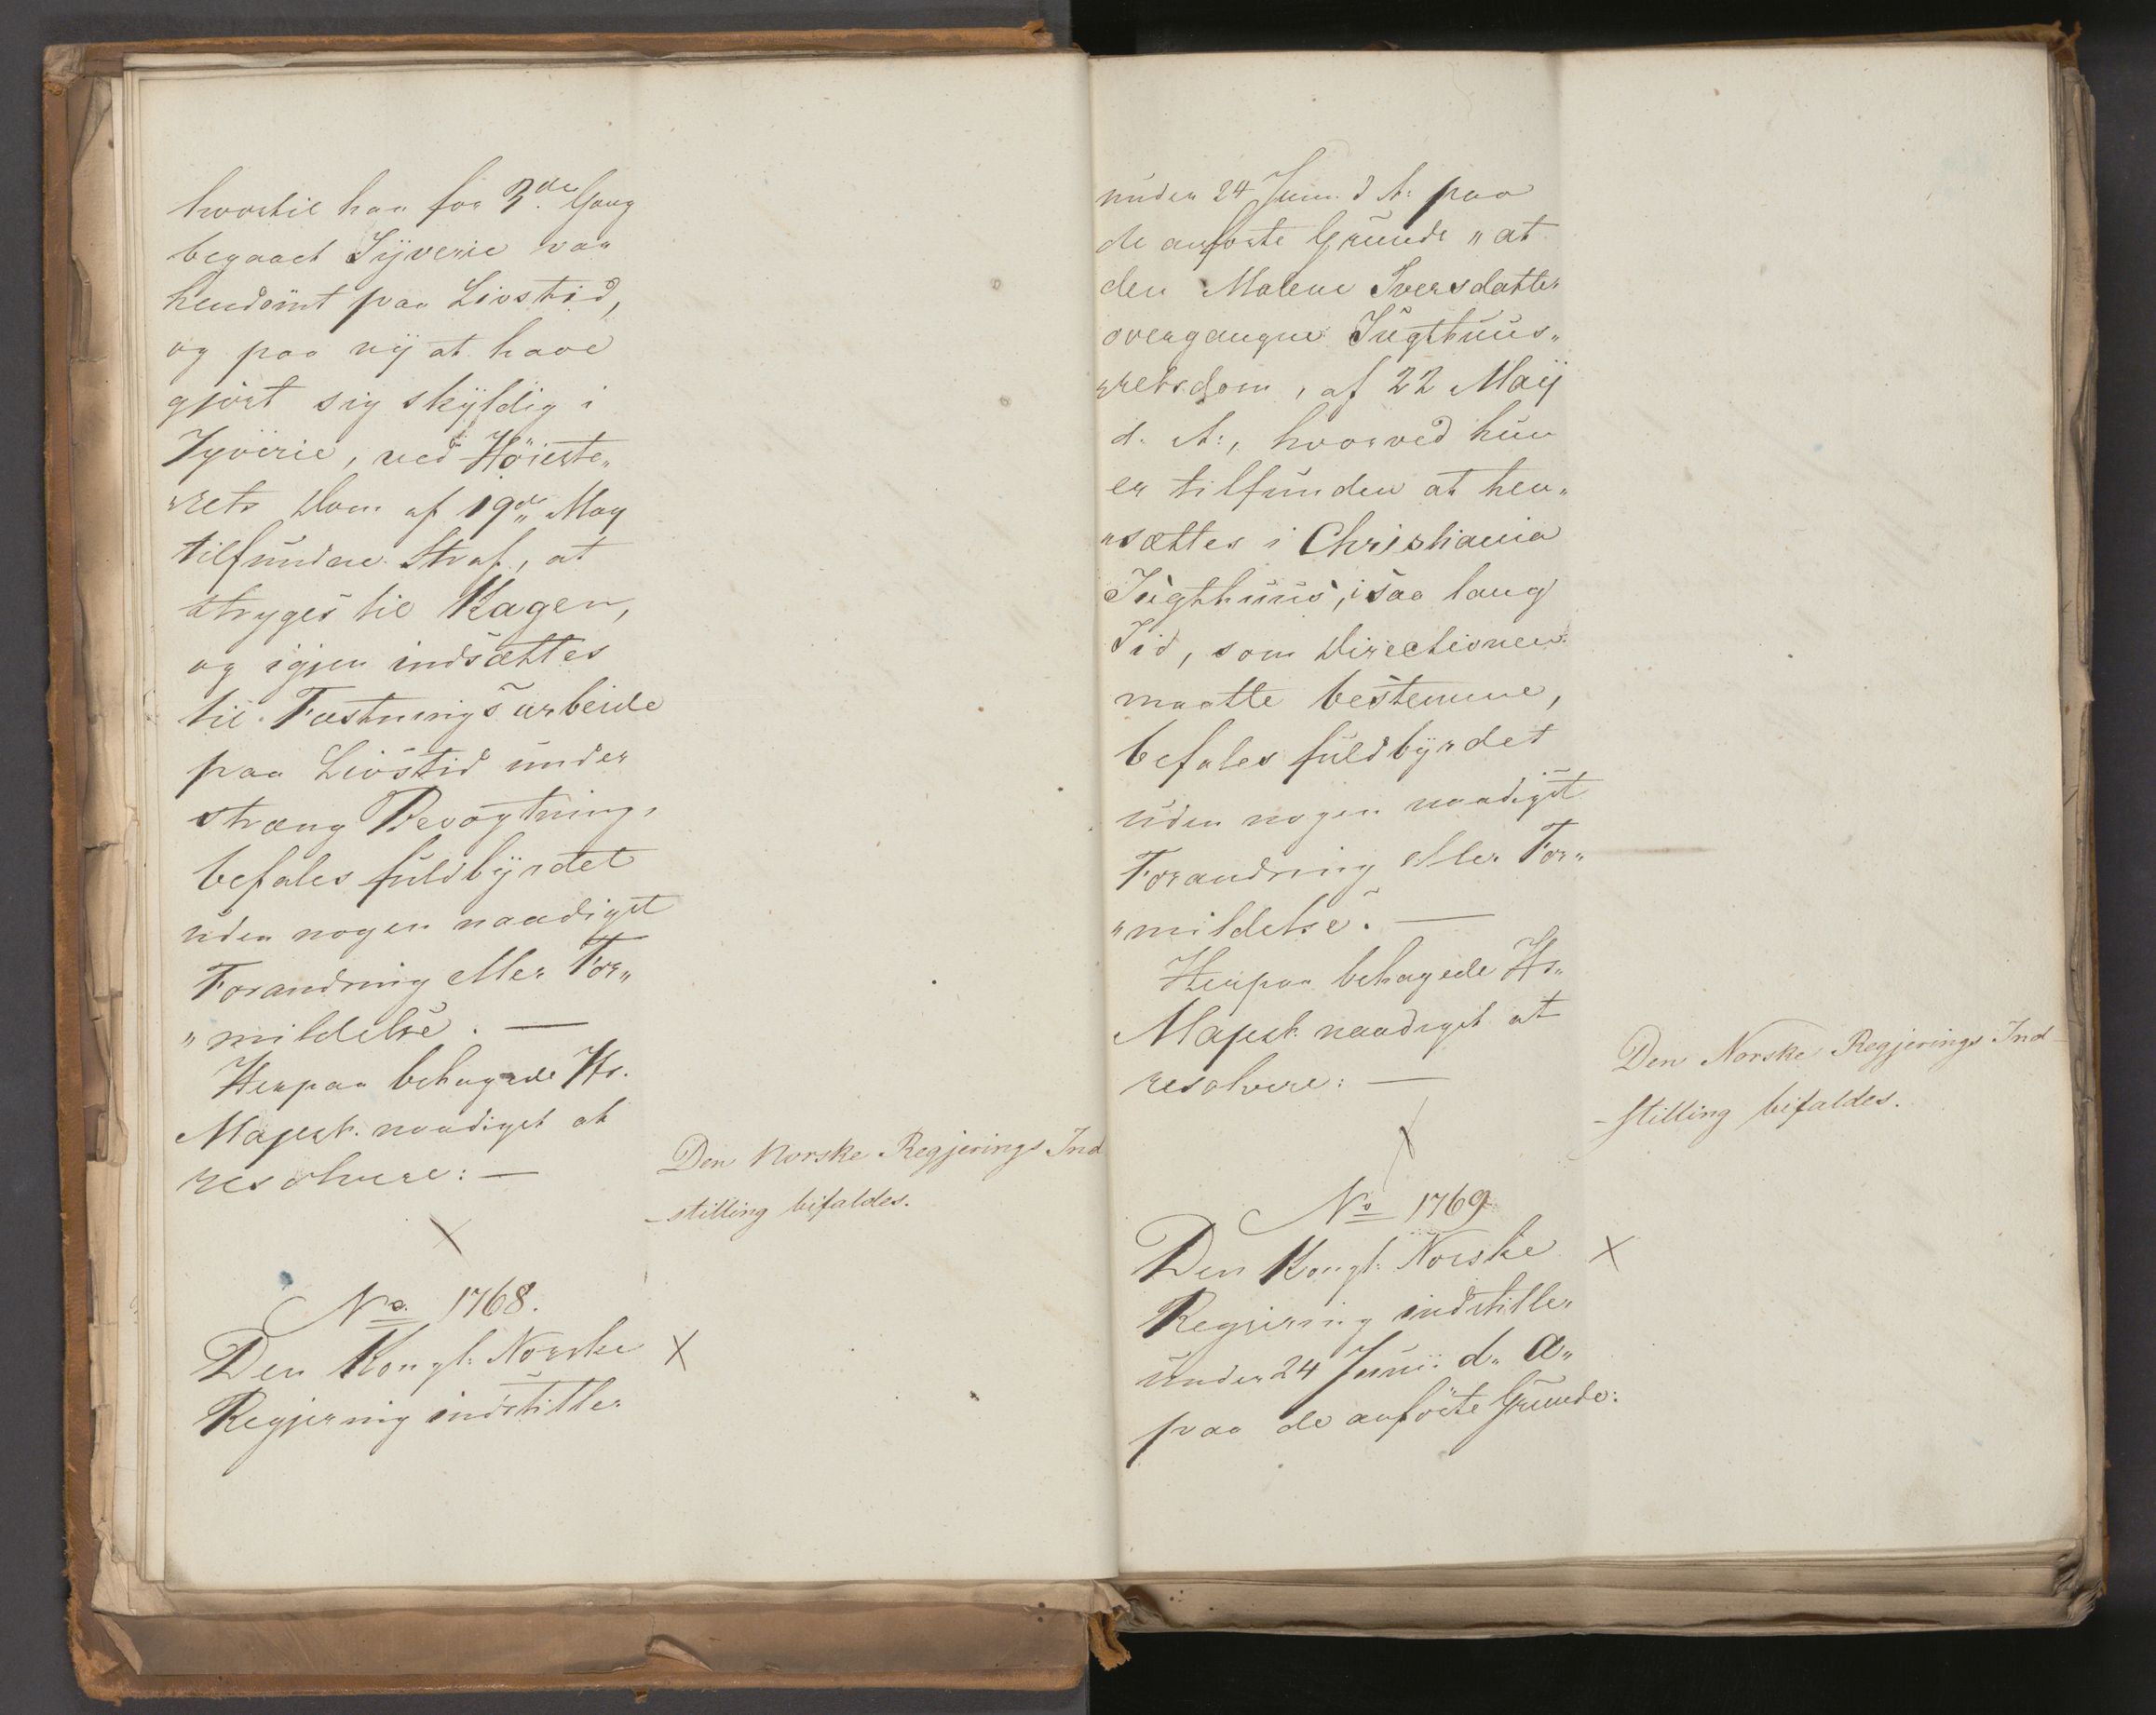 hvortil han for 3.de Gang
begaaet Tÿverie var
hendömt paa Livstid,
og paa nÿ at have
gjört sig skÿldig i
Tyverie, ved Höieste„
„rets Dom af 19de May
tilfundne Straf, at
stryges til Kagen,
og igjen indsættes
til Fæstningsarbeide
paa Livstid under
stræng Bevogtning,
befales fuldbÿrdet
uden nogen naadigst
Forandring eller For„
„mildelse. —
Herpaa behagede Hs.
Majest. naadigst at
resolvere: —
Den Norske Regjerings Ind
-stilling bifaldes.
No. 1768.
Den Kongl: Norske
Regjering indstiller
under 24 Juni d. A: paa
de anförte Grunde „at
den Malene Iversdatter
overgangne Tugthuus„
„retsdom, af 22 Maÿ
d. A:, hvorved hun
er tilfunden at hen„
„sættes i Christiania
Tugthuus, i saa lang
Tid, som Directionen
maatte bestemme,
befales fuldbÿrdet
uden nogen naadigst
Forandring eller For„
„mildelse. —
Herpaa behagede Hs„
Majest. naadigst at
resolvere: —
Den Norske Regjerings Ind-
-stilling bifaldes.
No 1769
Den Kongl: Norske
Regjering indstiller
under 24 Junii d„ A„
paa de anförte Grunde: